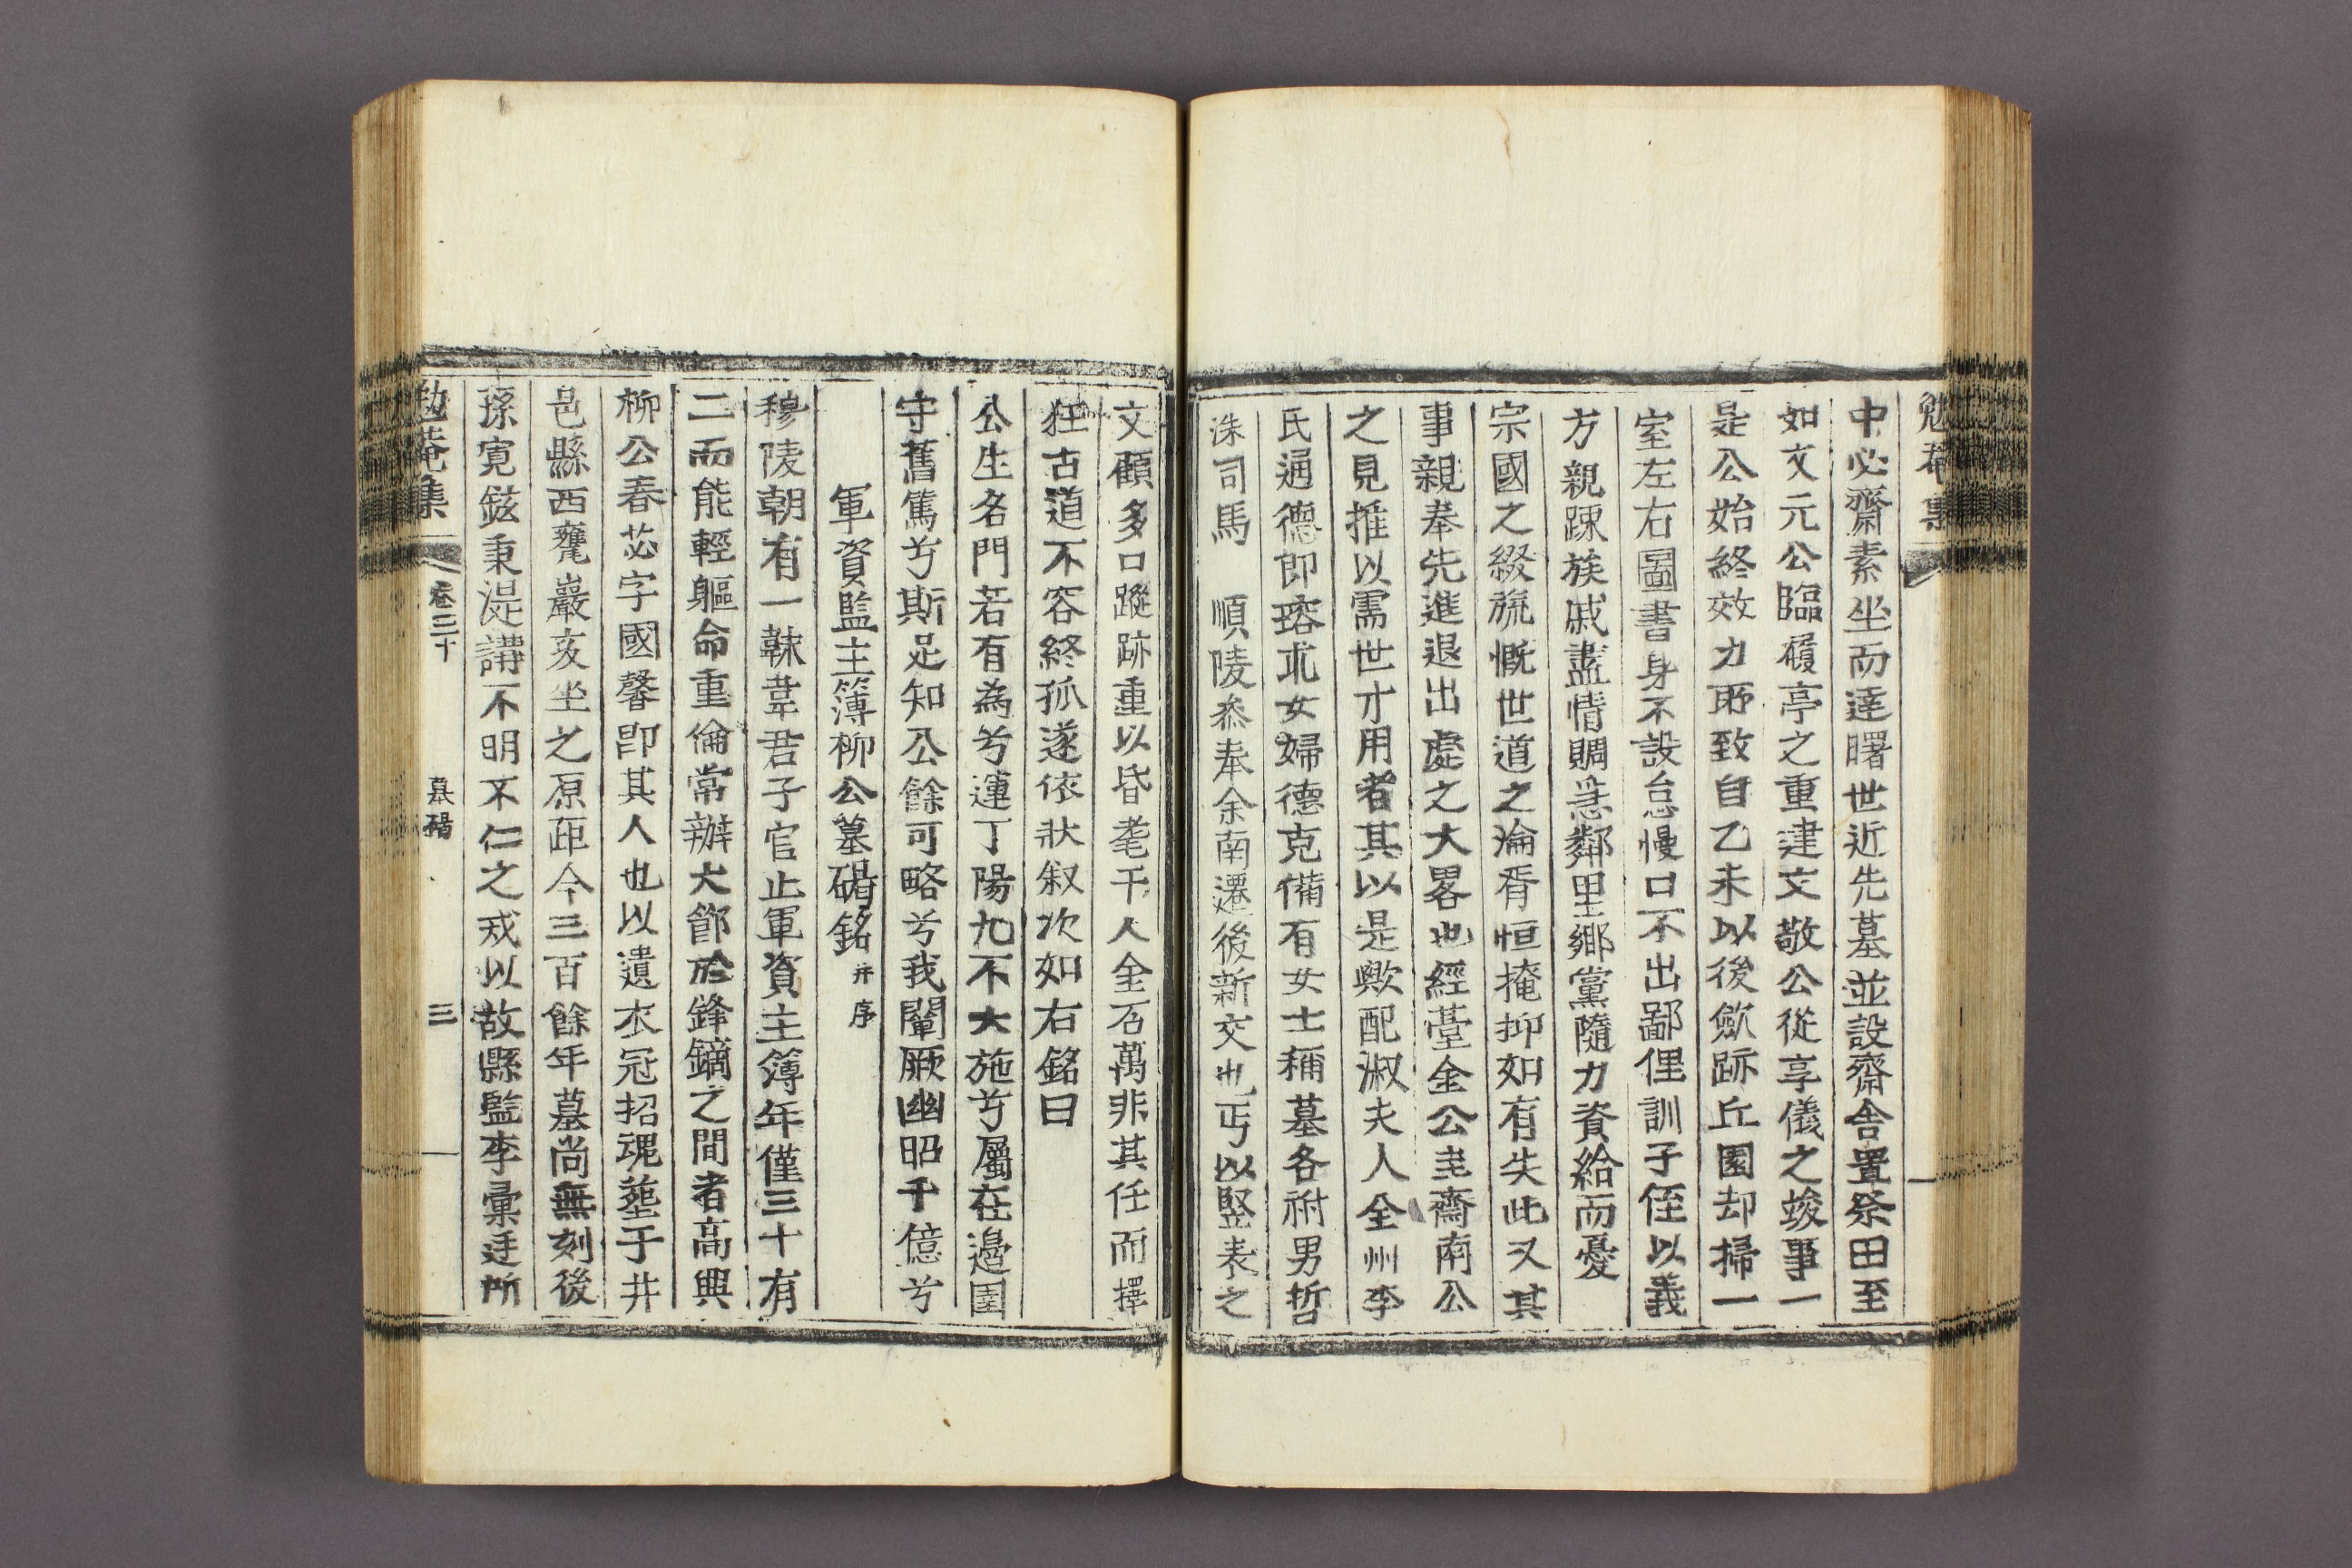 中必齋素坐而達曙世近先墓並設齋舍置祭田至
如文元公臨履亭之重建文敬公從享儀之竣事一
是公始終效力所致自乙未以後斂跡丘園却掃一
室左右圖書身不設怠慢口不出鄙俚訓子侄以義
方親踈族戚盡情賙急鄰里鄉黨隨力資給而憂
宗國之綴旒慨世道之淪胥恒掩抑如有失此又其
事親奉先進退出處之大畧也經臺金公圭齋南公
之見推以需世才用者其以是歟配淑夫人全州李
氏通德郎瑢丕女婦德克備有女士稱墓各祔男哲
洙司馬 順陵叅奉余南遷後新交也丐以竪表之
文顧多口蹤跡重以昏耄千人金石萬非其任而擇
狂古道不容終孤遂依狀叙次如右銘曰
公生名門若有為兮運丁陽九不大施兮屬在邊圉
守舊篤兮斯足知公餘可略兮我闡厥幽昭千億兮
軍資監主簿柳公墓碣銘 并序
穆陵朝有一韎韋君子官止軍資主簿年僅三十有
二而能輕軀命重倫常辦大節於鋒鏑之間者高興
柳公春苾字國馨卽其人也以遺衣冠招魂塟于井
邑縣西甕巖亥坐之原距今三百餘年墓尚無刻後
孫寬鉉秉湜講不明不仁之戒以故縣監李彙廷所
勉菴集 卷三十 墓碣 三